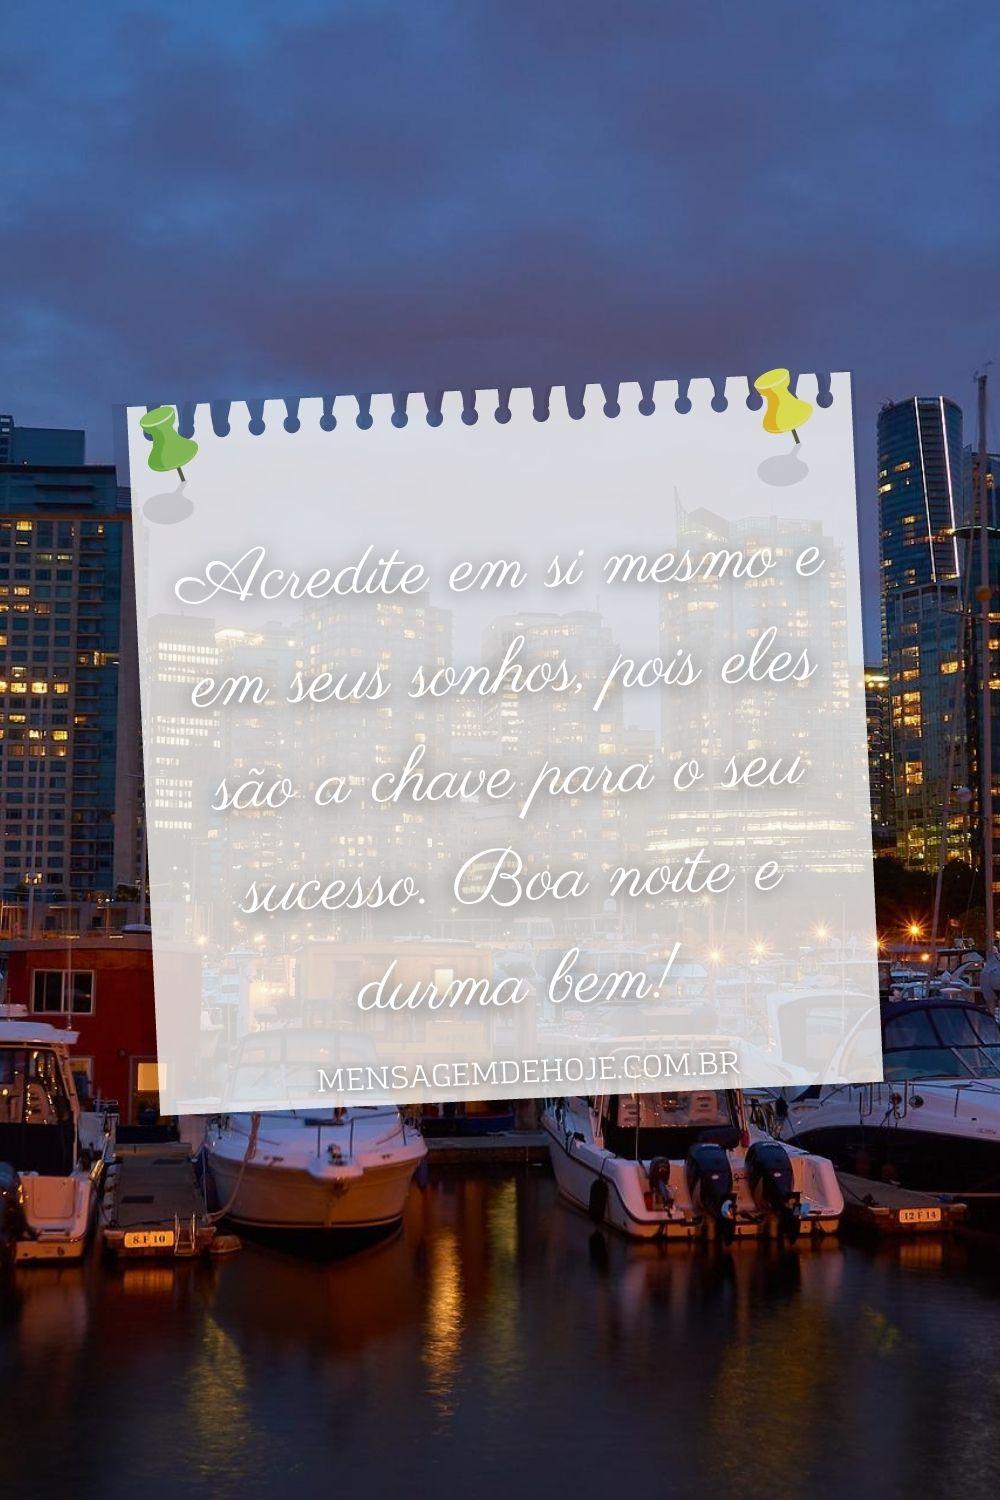 Acredite em si mesmo e
em seus sonhos, pois eles
são a chave para o seu
sucesso. Boa noite e
durma bem!
MENSAGEMDEHOJE.COM.BR
8 F 10
12 F 14